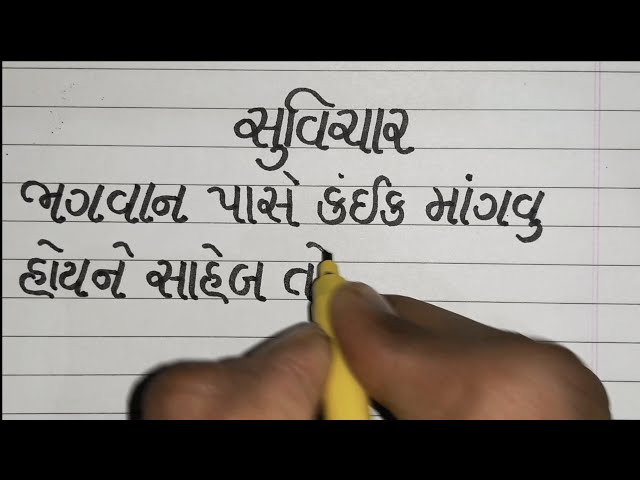 સુવિચાર
ભગવાન પાસે કંઈક માંગવુ
હોયને સાહેબ